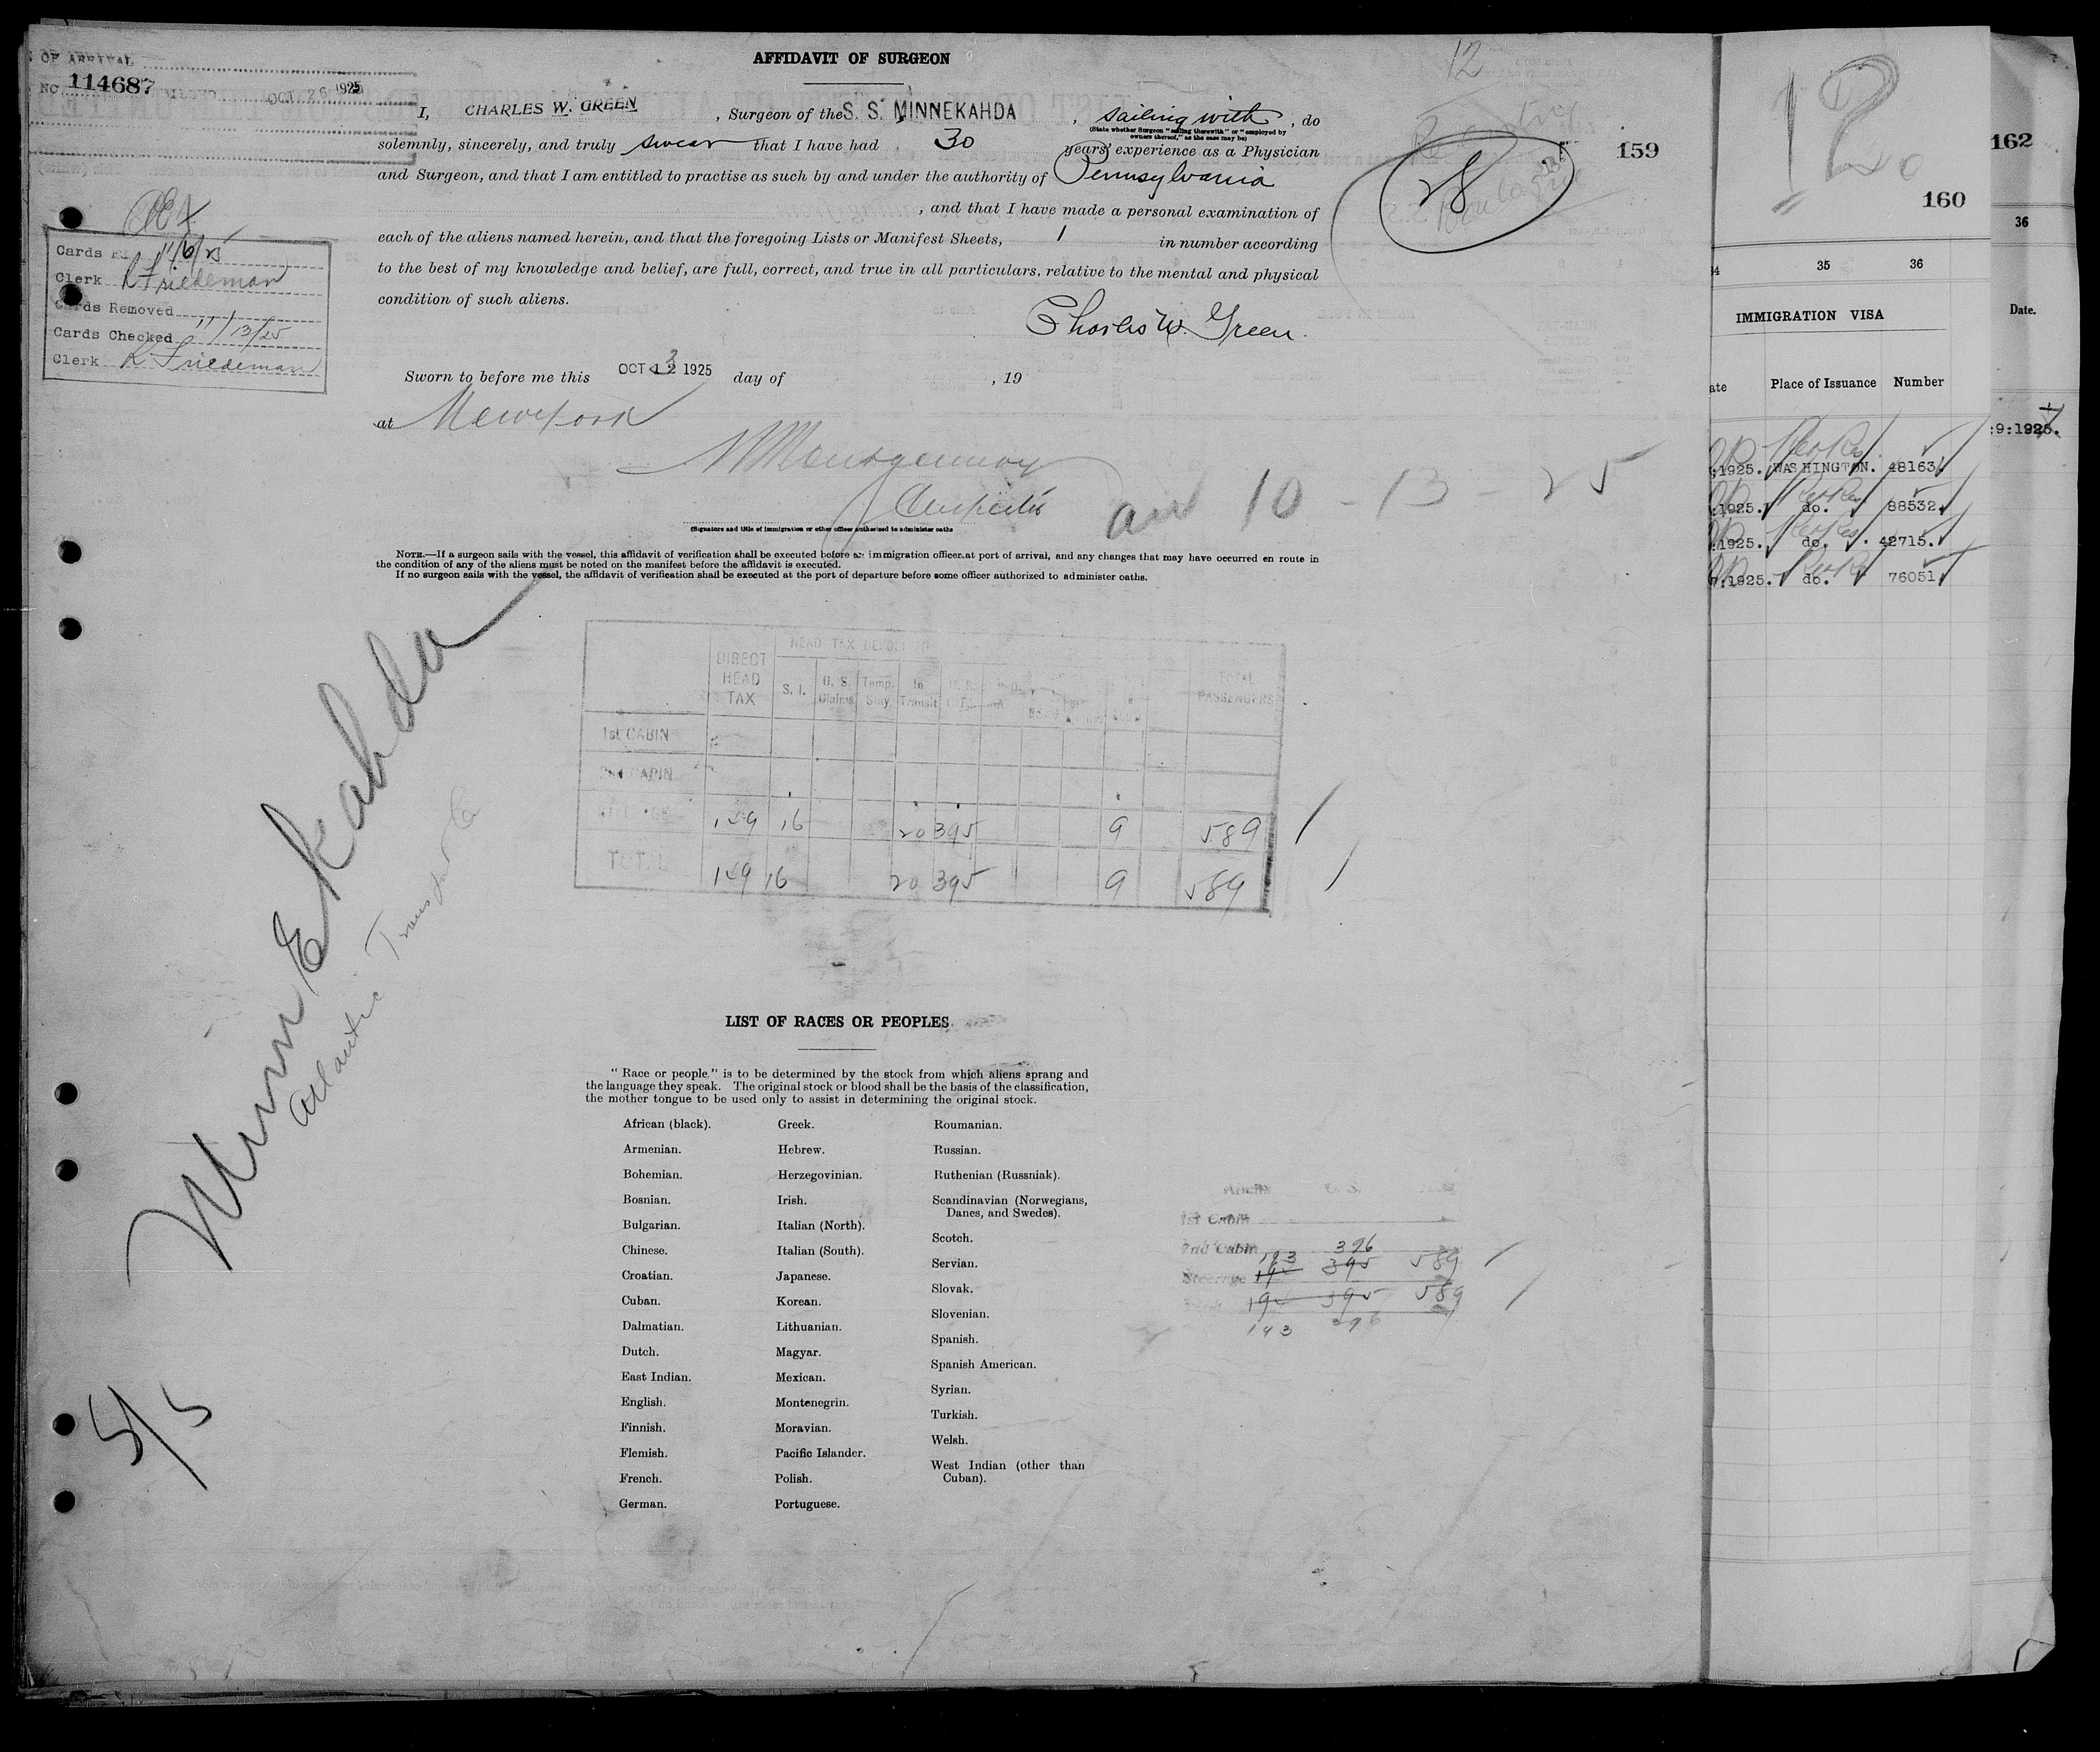 AFFIDAVIT OF SURGEON
12
OF ARRIVAL
No. 114687
OCT 26 1925
I, CHARLES W. GREEN, Surgeon of the S. S. MINNEKAHDA, sailing with, do
(State whether Surgeon "sailing therewith" or "employed by
owners thereof," as the case may be)
solemnly, sincerely, and truly swear that I have had 30 years' experience as a Physician
and Surgeon, and that I am entitled to practise as such by and under the authority of Pennsylvania
, and that I have made a personal examination of
each of the aliens named herein, and that the foregoing Lists or Manifest Sheets, 1 in number according
to the best of my knowledge and belief, are full, correct, and true in all particulars, relative to the mental and physical
condition of such aliens.
28
159
Charles W. Green.
Cards 11/6/25
Clerk R Friedeman
Cards Removed
Cards Checked 11/13/25
Clerk R Friedeman
Sworn to before me this OCT 13 1925 day of , 19
at New York
Montgomery
arr 10-13-25
(Signature and title of immigration or other officer authorized to administer oaths
NOTE.—If a surgeon sails with the vessel, this affidavit of verification shall be executed before an immigration officer at port of arrival, and any changes that may have occurred en route in
the condition of any of the aliens must be noted on the manifest before the affidavit is executed.
If no surgeon sails with the vessel, the affidavit of verification shall be executed at the port of departure before some officer authorized to administer oaths.
MinnEkahda
Atlantic Transport Co
5/5
HEAD TAX DEPOSITED
DIRECT HEAD TAX
S. I.
U. S. Claims
Temp. Stay
In Transit
TOTAL PASSENGERS
1st CABIN
2nd CABIN
149 16 20 395 9 589
TOTAL 149 16 20 395 9 589
LIST OF RACES OR PEOPLES
"Race or people" is to be determined by the stock from which aliens sprang and
the language they speak. The original stock or blood shall be the basis of the classification,
the mother tongue to be used only to assist in determining the original stock.
African (black).
Armenian.
Bohemian.
Bosnian.
Bulgarian.
Chinese.
Croatian.
Cuban.
Dalmatian.
Dutch.
East Indian.
English.
Finnish.
Flemish.
French.
German.
Greek.
Hebrew.
Herzegovinian.
Irish.
Italian (North).
Italian (South).
Japanese.
Korean.
Lithuanian.
Magyar.
Mexican.
Montenegrin.
Moravian.
Pacific Islander.
Polish.
Portuguese.
Roumanian.
Russian.
Ruthenian (Russniak).
Scandinavian (Norwegians,
Danes, and Swedes).
Scotch.
Servian.
Slovak.
Slovenian.
Spanish.
Spanish American.
Syrian.
Turkish.
Welsh.
West Indian (other than
Cuban).
1st Cabin
2nd Cabin
396
193
Steerage 395 589
395 589
193 396
12
160
34 35 36
IMMIGRATION VISA
ate Place of Issuance Number
:1925. WASHINGTON. 48163
:1925. do. 88532.
:1925. do. 42715.
7:1925. do. 76051
162
36
Date.
:9:1925.